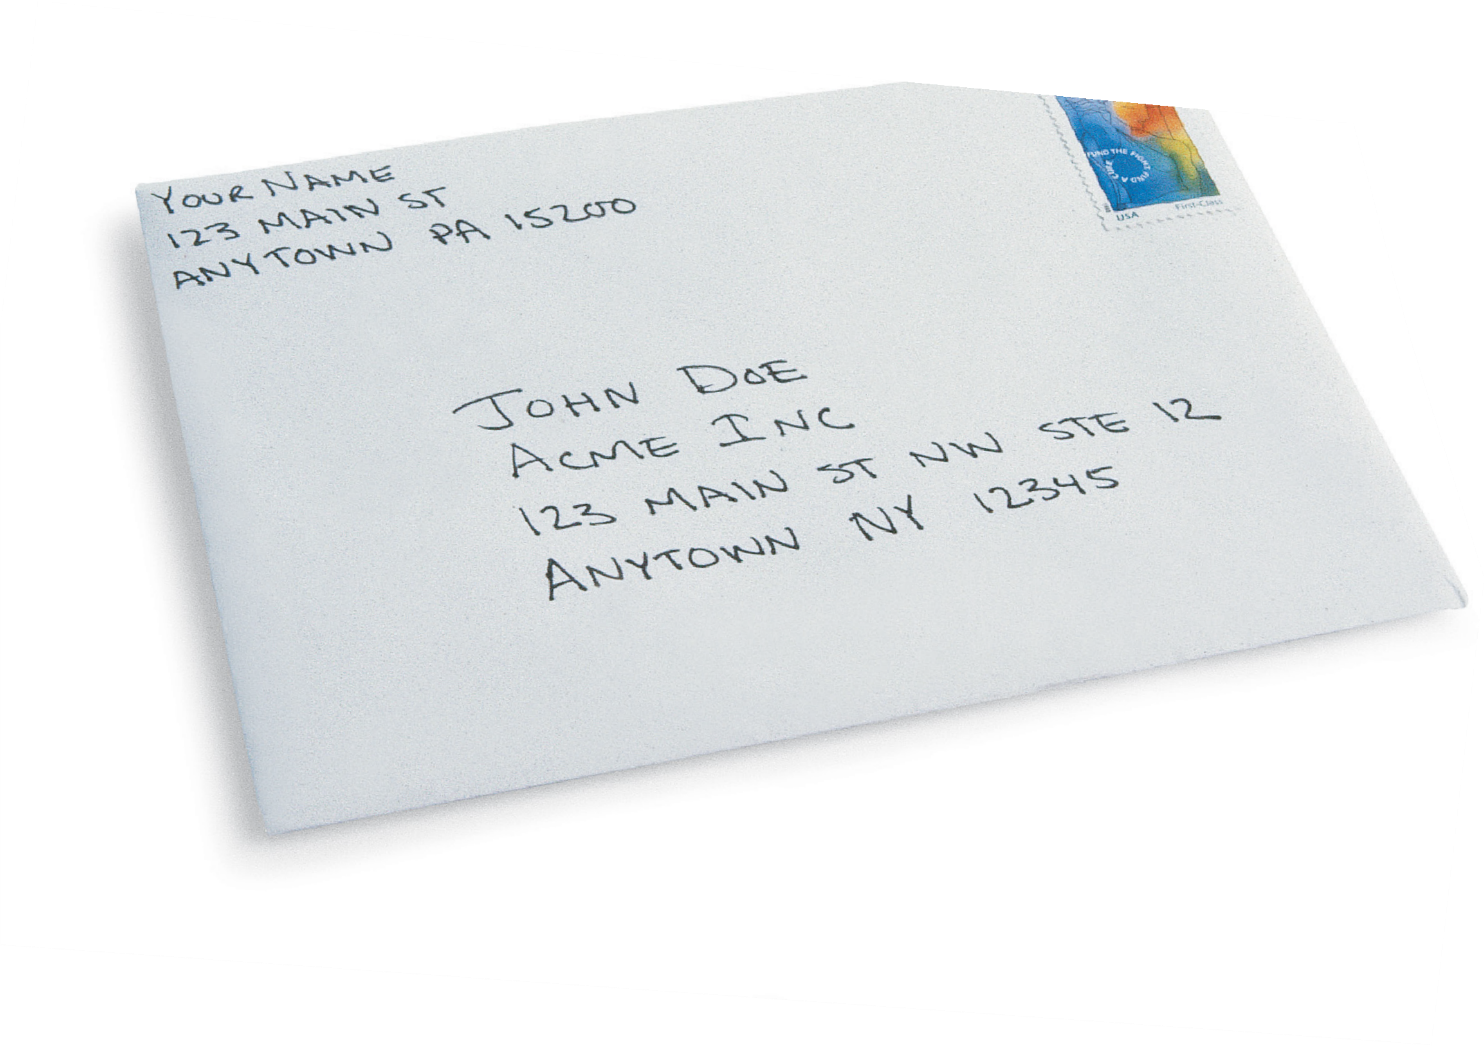 YOUR NAME
123 MAIN ST
ANYTOWN PA 15200
FUND THE FIGHT FIND A CURE
USA
First-Class
JOHN DOE
ACME INC
123 MAIN ST NW STE 12
ANYTOWN NY 12345